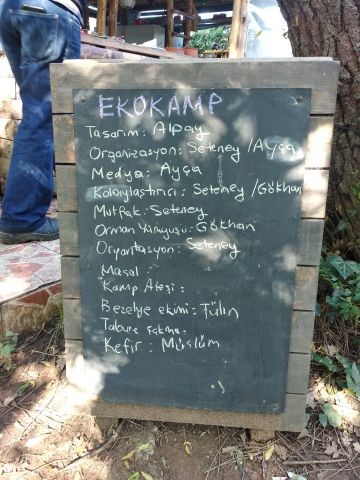 EKOKAMP
Tasarım: Alpay
Organizasyon: Seteney/Ayça
Medya: Ayça
Kolaylaştırıcı: Seteney/Gökhan
Mutfak: Seteney
Orman Yürüyüşü: Gökhan
Oryantasyon: Seteney
Masal:
Kamp Ateşi:
Bezelye ekimi: Tülin
Tabure
Kefir: Müslüm